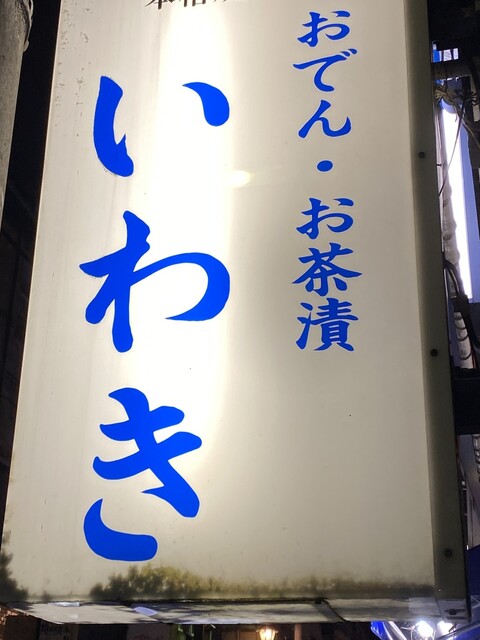 おでん・お茶漬
いわき